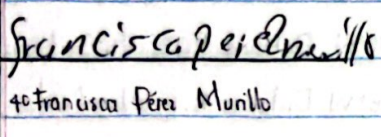 Francisca Perez Murillo
4º Francisca Pérez Murillo